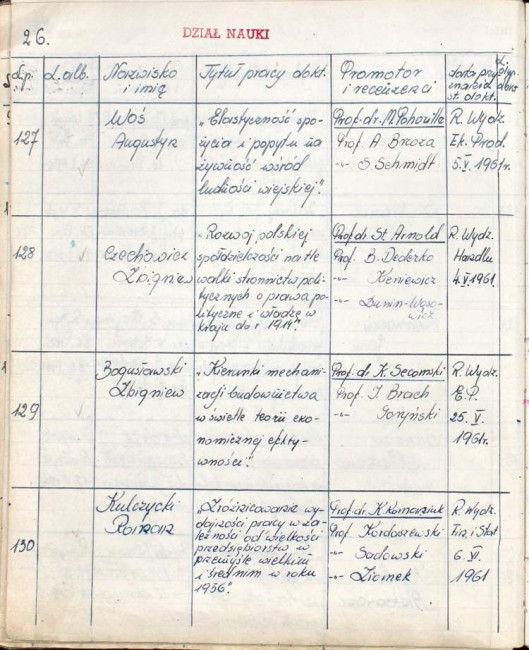 26.
DZIAŁ NAUKI
L.p. L. alb. Nazwisko i imię Tytuł pracy dokt. Promotor i recenzenci data przyznania st. dokt.
127
Woś
Augustyn
"Elastyczność spo-
życia i popytu na
żywność wśród
ludności wiejskiej".
Prof. dr. M. Pohorille
Prof. A. Brzoza
-"- S. Schmidt
R. Wydz.
Ek. Prod.
5.V.1961r.
128
Czechowicz
Zbigniew
"Rozwój polskiej
spółdzielczości na tle
walki stronnictw poli-
tycznych o prawa po-
lityczne i władzę w
kraju do r. 1914".
Prof. dr. St. Arnold
Prof. B. Dederko
-"- Kieniewicz
-"- Dunin-Wąso-
wicz
R. Wydz.
Handlu
4.V.1961.
129
Bogusławski
Zbigniew
"Kierunki mechani-
zacji budownictwa
w świetle teorii eko-
nomicznej efekty-
wności".
Prof. dr K. Secomski
Prof. I. Brach
-"- Goryński
R. Wydz.
E.P.
25.V.
1961r.
130
Kulczycki
Roman
"Zróżnicowanie wy-
dajności pracy w za-
leżności od wielkości
przedsiębiorstw w
przemyśle wielkim
i średnim w roku
1956".
Prof. dr K. Romaniuk
Prof. Kordaszewski
-"- Sadowski
-"- Ziomek
R. Wydz.
Fin i Stat
6.VI.
1961